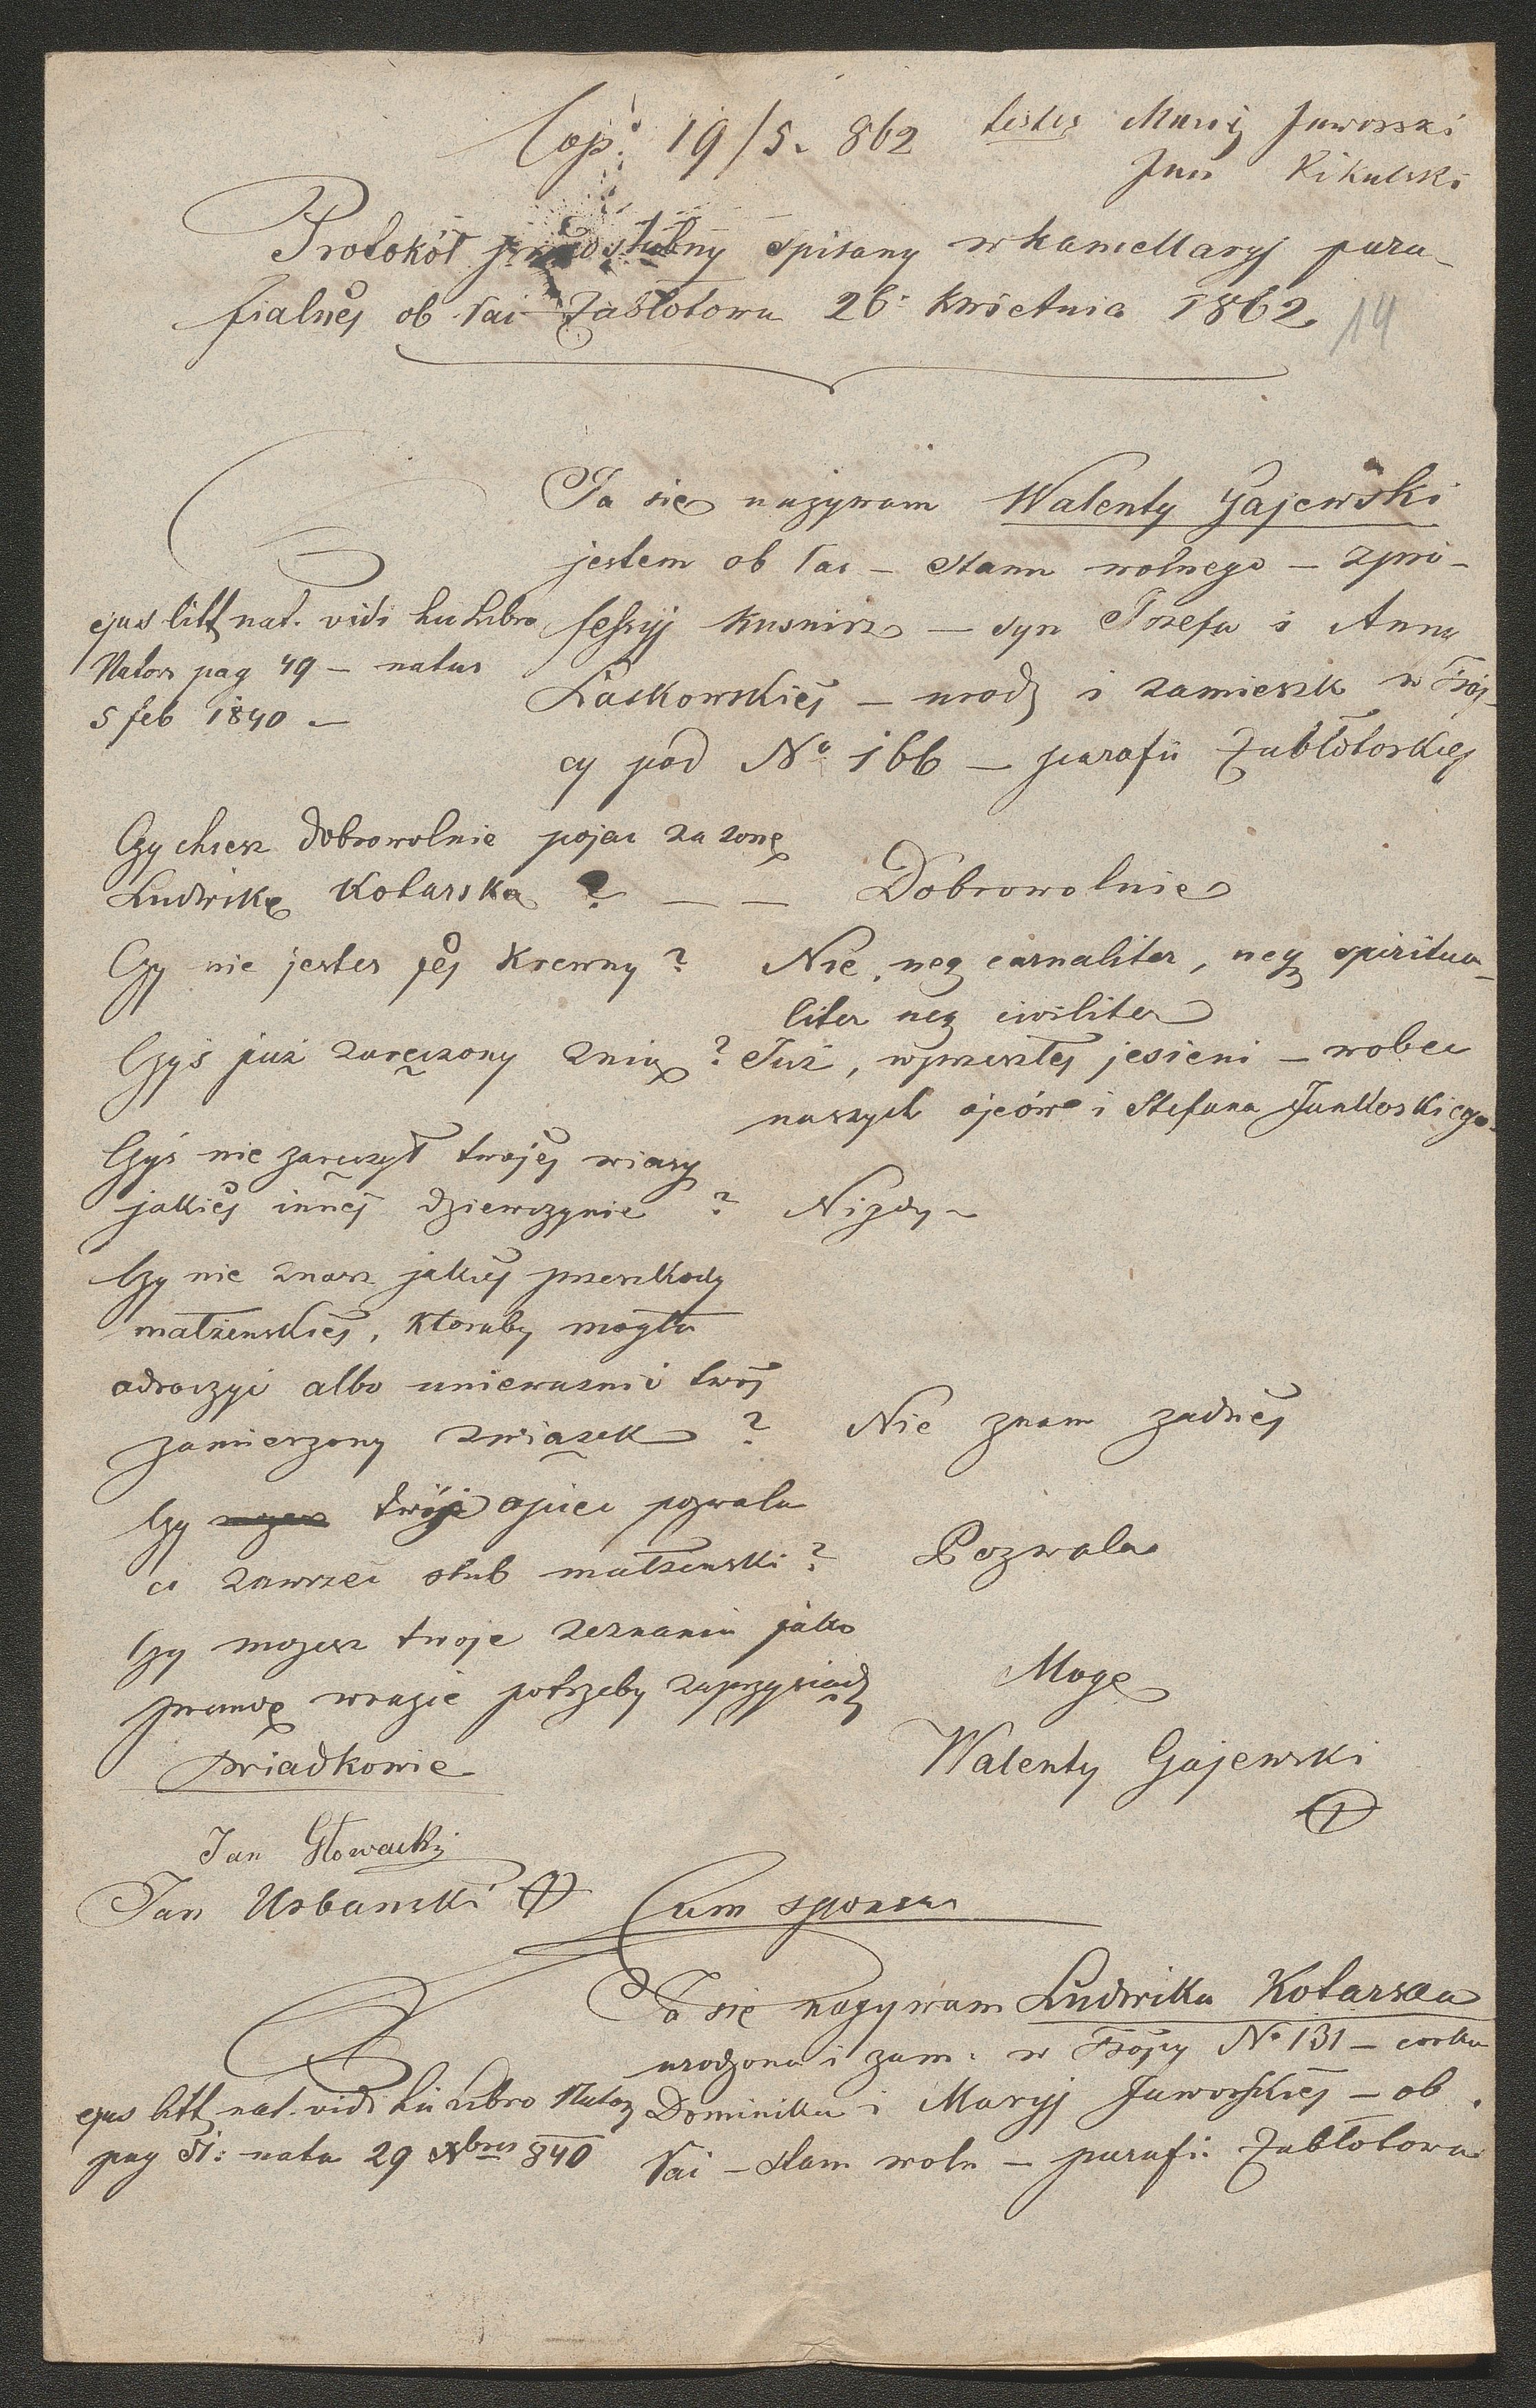 Cop. 19/5. 862 testes Maciej Jaworski
Jan Rikulski
Protokół przedslubny spisany w kancellaryj para-
fialnej ob. łac Zabłotowa 26. Kwietnia 1862.
14
Ja się nazywam Walenty Gajewski
jestem ob łac – stanu wolnego – z pro-
fessyj kusnierz – syn Jozefa i Anny
Laskowskiej – urodz i zamieszk w Trój-
cy pod No 166 – parafii Zabłotoskiej
ejus litt nat. vidi hu Libro
Nator pag 49 – natus
5 feb 1840 –
Czy chcesz dobrowolnie pojac za zonę
Ludwikę Kotarska ? – – Dobrowolnie
Czy nie jestes jej krewny ? Nie, neq carnaliter, neq spiritua-
liter neq civiliter
Czyś już zaręczony z nią ? Już, w przeszłej jesieni – wobec
naszych ojców i Stefana Jankoskiego.
Czyś nie zaręczył twojej wiary
jakiej innej dziewczynie ? Nigdy –
Czy nie znasz jakiej przeszkody
małzenskiej, któraby mogła
odroczyć albo uniewaznić twój
zamierzony związek ? Nie znam zadnej
Czy twój ojciec pozwala
ci zawrzeć slub małzenski ? Pozwala
Czy mozesz twoje zeznania jako
prawdę wrazie potrzeby zaprzysiądz Mogę
swiadkowie Walenty Gajewski
Jan Głowacki
Jan Urbanski
Cum sponsa
Ja się nazywam Ludwika Kotarska
urodzona i zam. w Trójcy No 131 – corka
Dominika i Maryj Jaworskiej – ob.
łac – stam woln – parafii Zabłotowa
ejus litt nat. vidi hu Libro Nator
pag 51: nata 29 Xbris 840